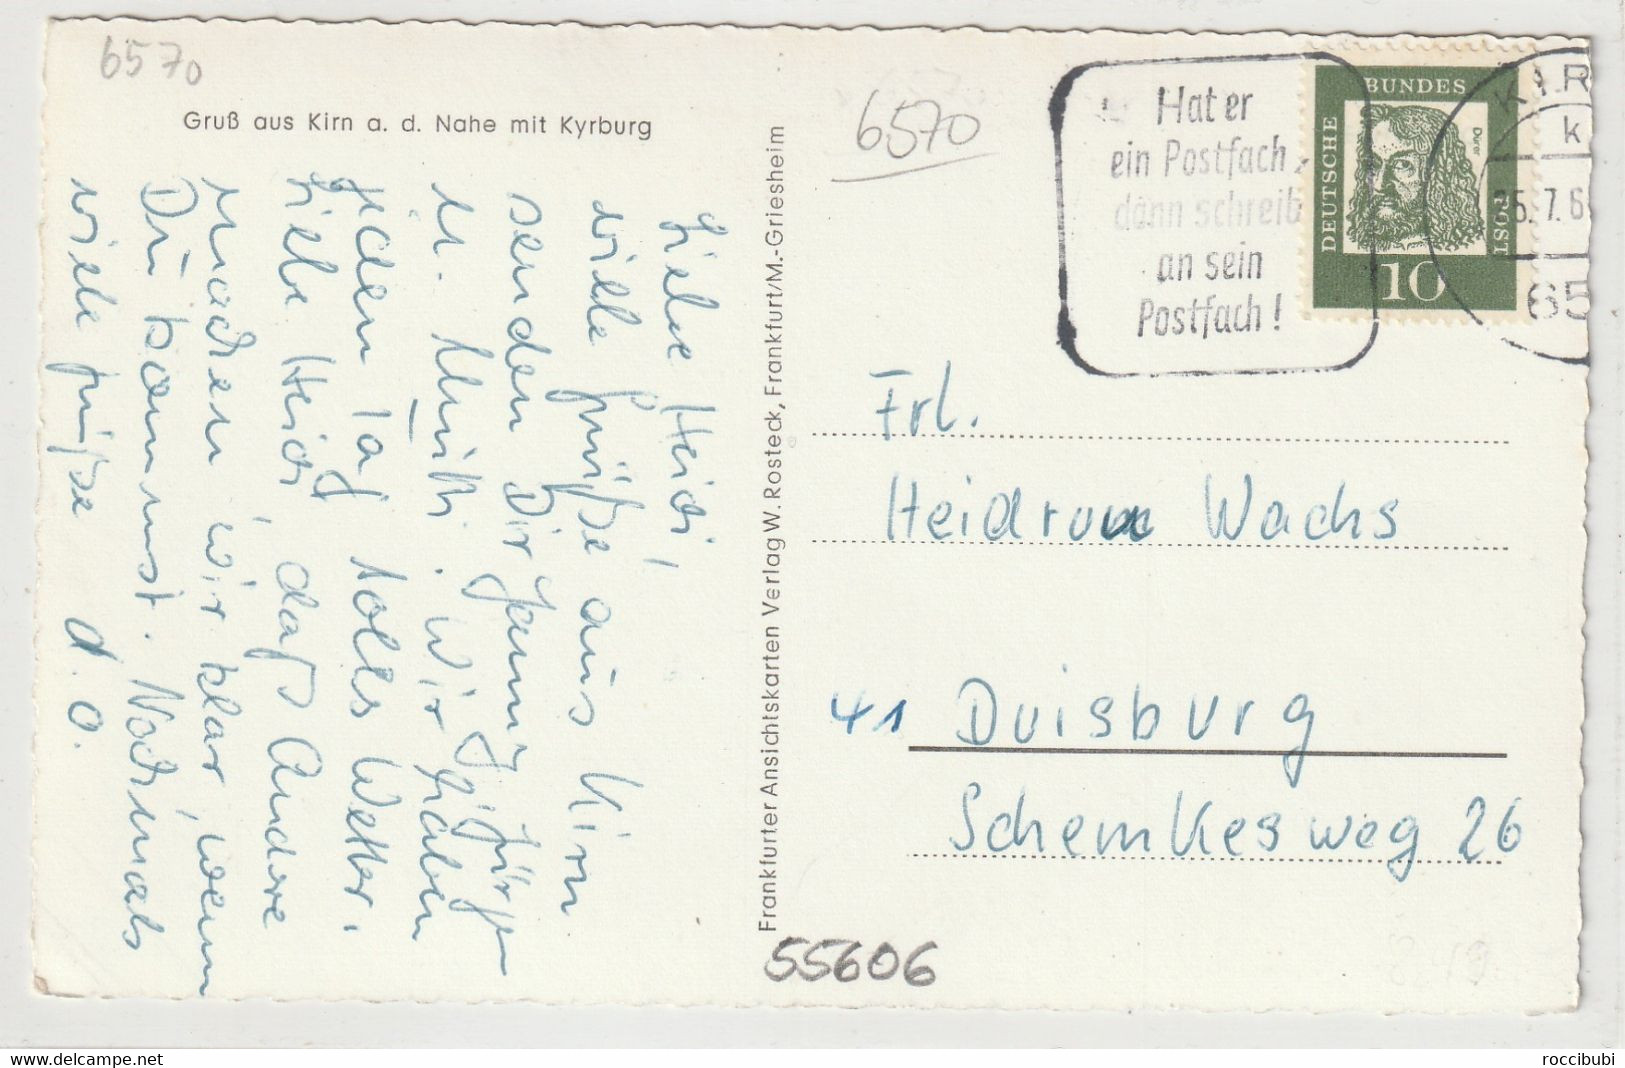 6570
Gruß aus Kirn a. d. Nahe mit Kyrburg
Liebe Heidi,
viele Grüße aus Kirn
senden Dir
u. Wir haben
jeden Tag tolles Wetter.
Liebe Heidi, das Andere
machen wir klar, wenn
Du kommst. Nochmals
viele Grüße d. O.
Frankfurter Ansichtskarten Verlag W. Rosteck, Frankfurt/M.-Griesheim
6570
Hat er
ein Postfach,
dann schreib
an sein
Postfach!
DEUTSCHE BUNDESPOST
Dürer
10
KIR
k
5.7.6
65
Frl.
Heidrun Wachs
41 Duisburg
Schemkesweg 26
55606
www.delcampe.net
roccibubi